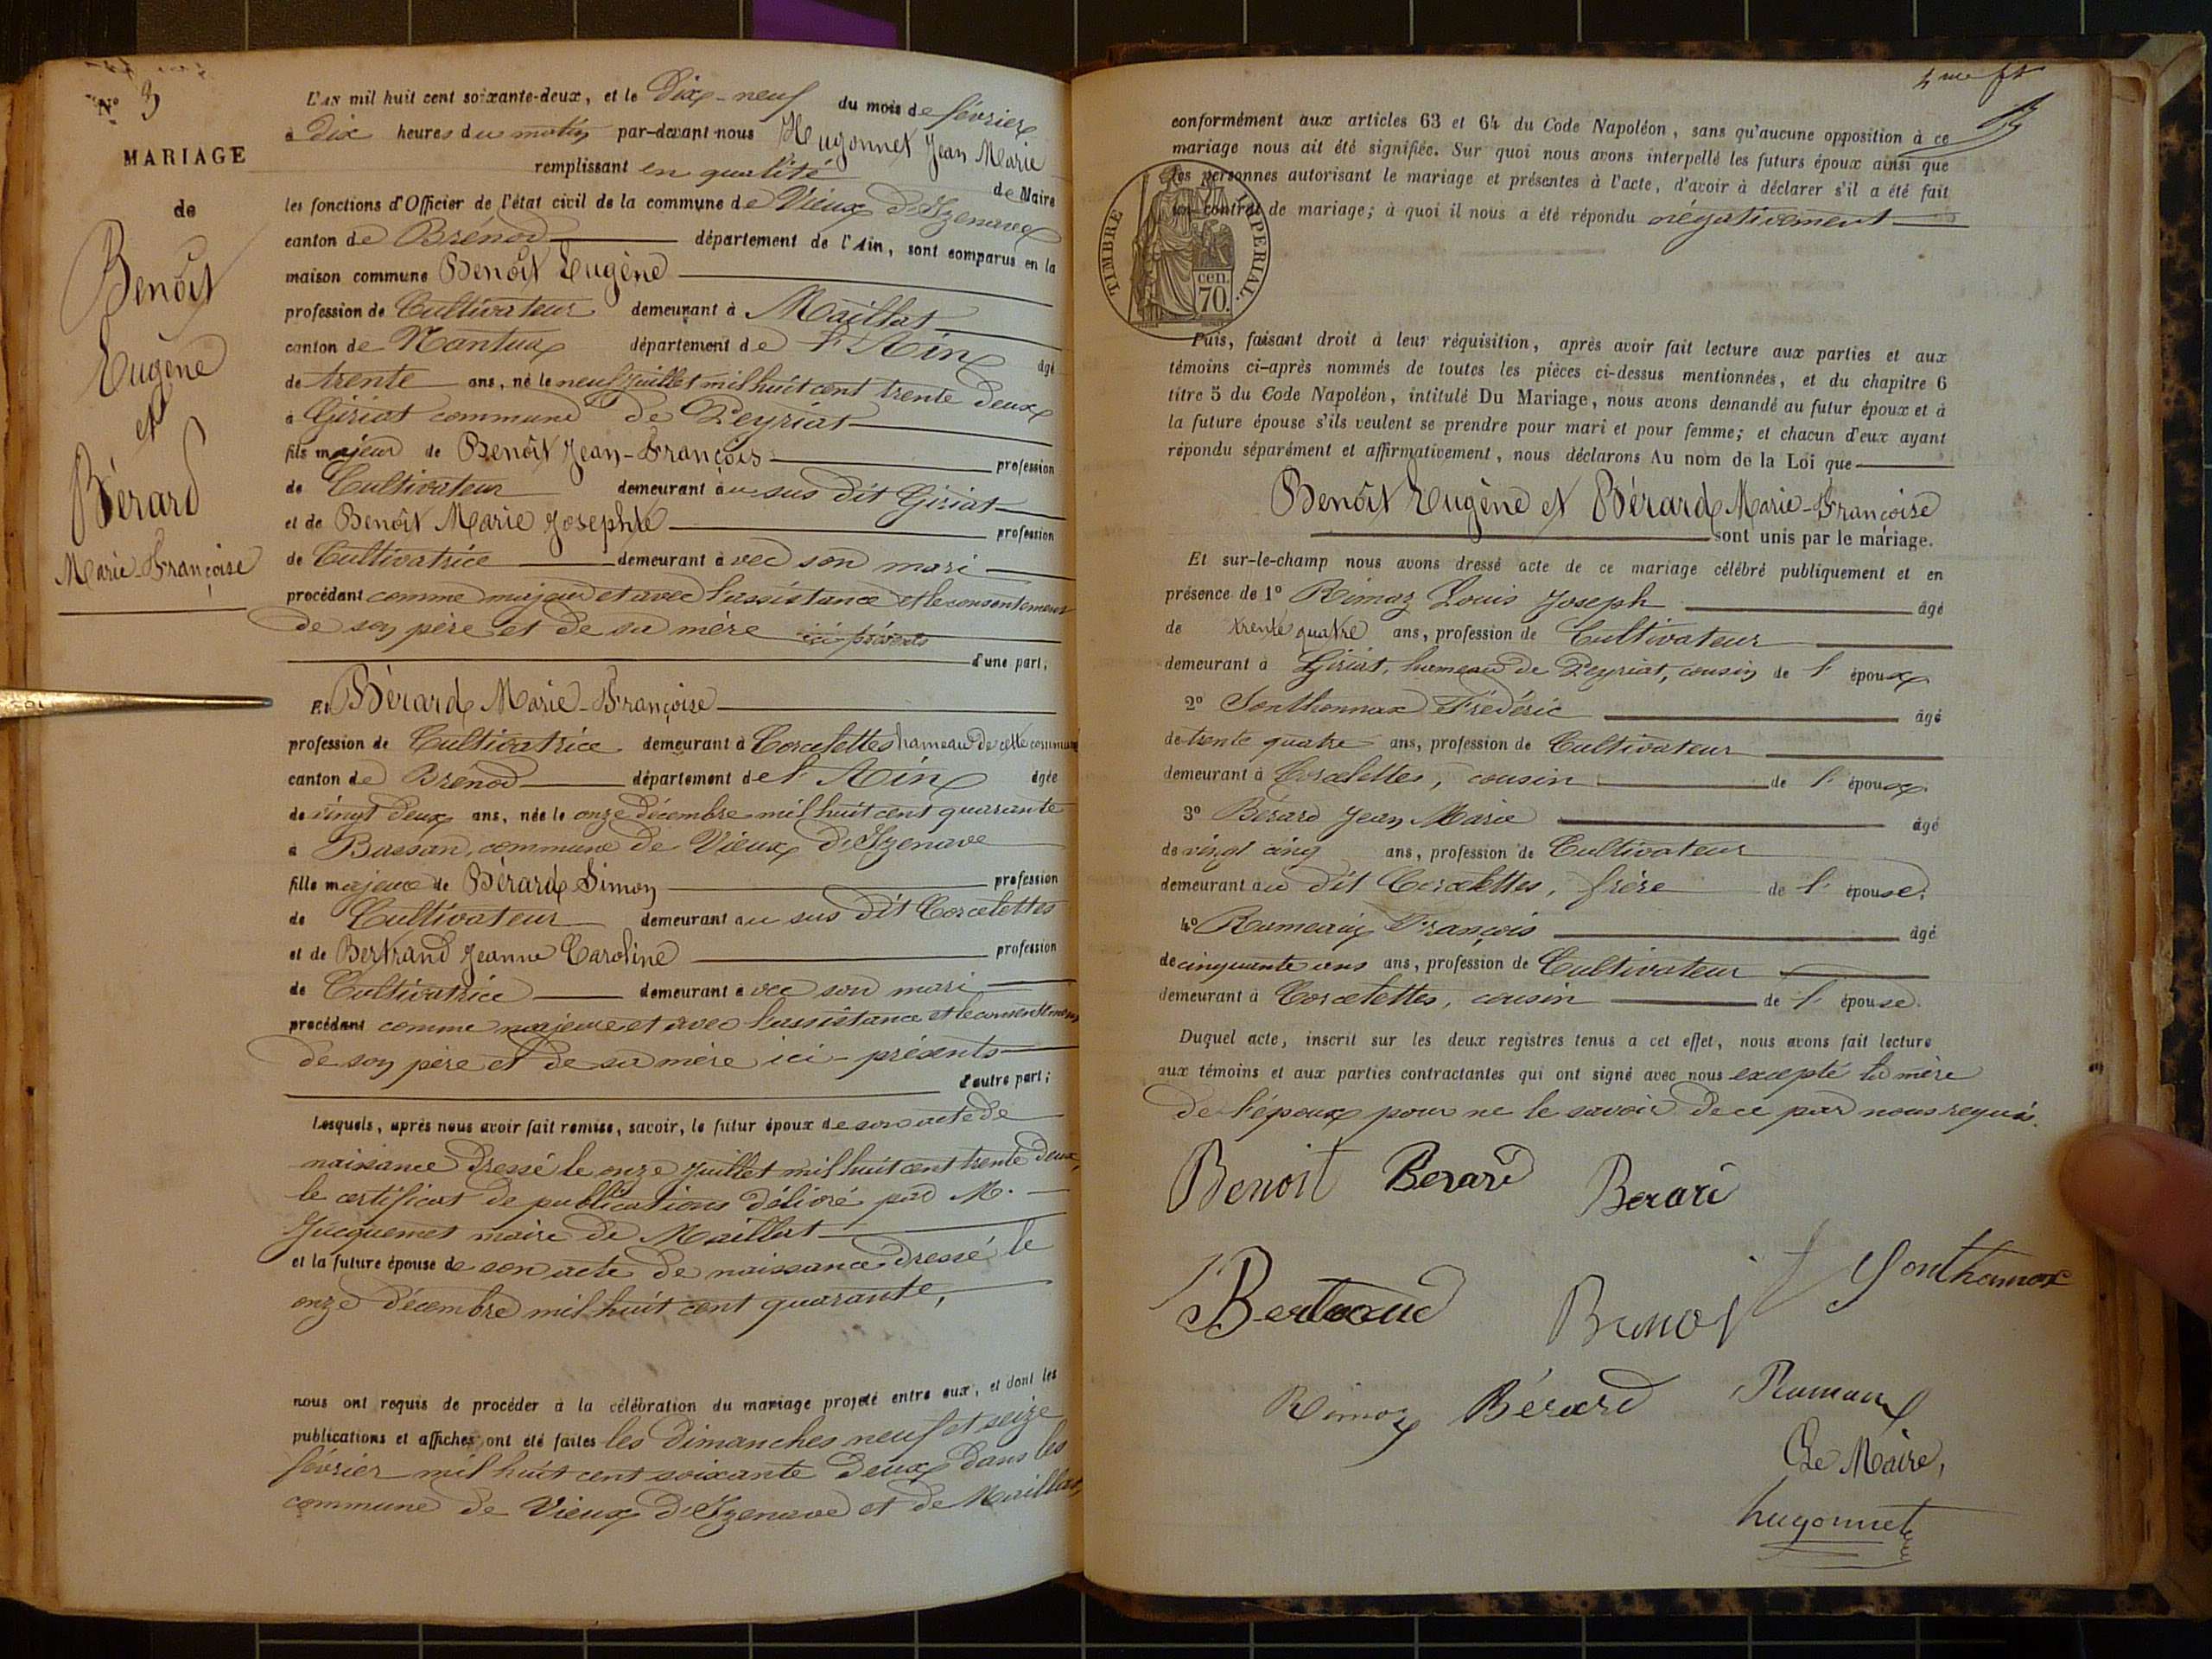 N° 3
MARIAGE
de
Benoit
Eugène
et
Bérard
Marie-Françoise
L'an mil huit cent soixante-deux, et le Dix-neuf du mois de février
à dix heures du matin par-devant nous Hugonnet Jean Marie
remplissant en qualité de Maire
les fonctions d'Officier de l'état civil de la commune de Vieux d'Izenave
canton de Brénod département de l'Ain, sont comparus en la
maison commune Benoît Eugène
profession de Cultivateur demeurant à Maillat
canton de Nantua département de l'Ain âgé
de trente ans, né le neuf Juillet mil huit cent trente deux
à Giriat commune de Peyriat
fils majeur de Benoît Jean-François profession
de Cultivateur demeurant au sus dit Giriat
et de Benoît Marie Josephte profession
de Cultivatrice demeurant avec son mari
procédant comme majeur et avec l'assistance et le consentement
de son père et de sa mère ici présents
d'une part,
Et Bérard Marie-Françoise
profession de Cultivatrice demeurant à Corcelettes hameau de cette commune
canton de Brénod département de l'Ain âgée
de vingt deux ans, née le onze décembre mil huit cent quarante
à Bussan, commune de Vieux d'Izenave
fille majeure de Bérard Simon profession
de Cultivateur demeurant au sus dit Corcelettes
et de Bertrand Jeanne Caroline profession
de Cultivatrice demeurant avec son mari
procédant comme majeure et avec l'assistance et le consentement
de son père et de sa mère ici-présents
d'autre part;
Lesquels, après nous avoir fait remise, savoir, le futur époux de son acte de
naissance dressé le onze Juillet mil huit cent trente deux,
le certificat de publications délivré par M.
Jacquemet maire de Maillat
et la future épouse de son acte de naissance dressé le
onze décembre mil huit cent quarante,
nous ont requis de procéder à la célébration du mariage projeté entre eux, et dont les
publications et affiches ont été faites les dimanches neuf et seize
février mil huit cent soixante deux dans les
commune de Vieux d'Izenave et de Maillat,
4me ft
conformément aux articles 63 et 64 du Code Napoléon, sans qu'aucune opposition à ce
mariage nous ait été signifiée. Sur quoi nous avons interpellé les futurs époux ainsi que
les personnes autorisant le mariage et présentes à l'acte, d'avoir à déclarer s'il a été fait
un contrat de mariage; à quoi il nous a été répondu négativement
TIMBRE IMPERIAL.
70 cen.
Puis, faisant droit à leur réquisition, après avoir fait lecture aux parties et aux
témoins ci-après nommés de toutes les pièces ci-dessus mentionnées, et du chapitre 6
titre 5 du Code Napoléon, intitulé Du Mariage, nous avons demandé au futur époux et à
la future épouse s'ils veulent se prendre pour mari et pour femme; et chacun d'eux ayant
répondu séparément et affirmativement, nous déclarons Au nom de la Loi que
Benoît Eugène et Bérard Marie-Françoise
sont unis par le mariage.
Et sur-le-champ nous avons dressé acte de ce mariage célébré publiquement et en
présence de 1° Rimoz Louis Joseph âgé
de trente quatre ans, profession de Cultivateur
demeurant à Giriat, hameau de Peyriat, cousin de l'époux
2° Sonthonnax Frédéric âgé
de trente quatre ans, profession de Cultivateur
demeurant à Corcelettes, cousin de l'époux
3° Bérard Jean Marie âgé
de vingt cinq ans, profession de Cultivateur
demeurant au dit Corcelettes, frère de l'épouse.
4° Rumeaux François âgé
de cinquante ans ans, profession de Cultivateur
demeurant à Corcelettes, cousin de l'épouse.
Duquel acte, inscrit sur les deux registres tenus à cet effet, nous avons fait lecture
aux témoins et aux parties contractantes qui ont signé avec nous excepté la mère
de l'époux pour ne le savoir de ce par nous requis.
Benoit Berard Berard
Bertrand Benoi Sonthonnax
Rimoz Bérard
Le Maire,
hugonnet